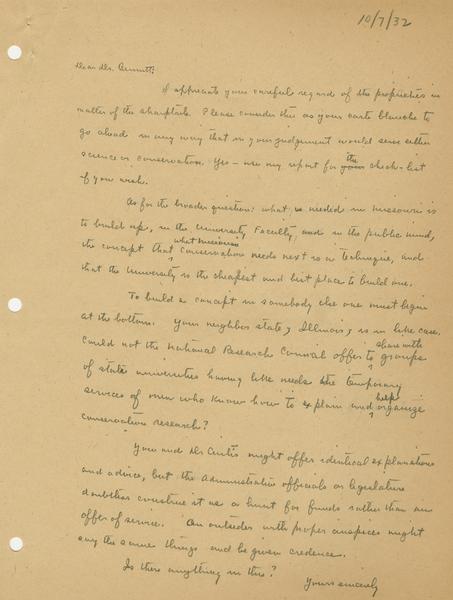 10/7/32
Dear Dr. Bennitt:
I appreciate your careful regard of the proprieties in
matter of the sharptails. Please consider this as your carte blanche to
go ahead in any way that in your judgement would serve either
science or conservation. Yes - use my report for the check-list
if you wish.
As for the broader question: what is needed in Missouri is
to build up, in the University Faculty, and in the public mind,
the concept that what Missouri conservation needs next is a technique, and
that the University is the cheapest and best place to build one.
To build a concept in somebody else one must begin
at the bottom. Your neighbor state, Illinois, is in like case.
Could not the National Research Council offer to share with groups
of state universities having like needs the temporary
services of men who know how to explain and help organize
conservation research?
You and Dr Curtis might offer identical explanations
and advice, but the administrative officials or legislature
doubtless construe it as a hunt for funds rather than an
offer of service. An outsider with proper auspices might
say the same things and be given credence.
Is there anything in this?
Yours sincerely